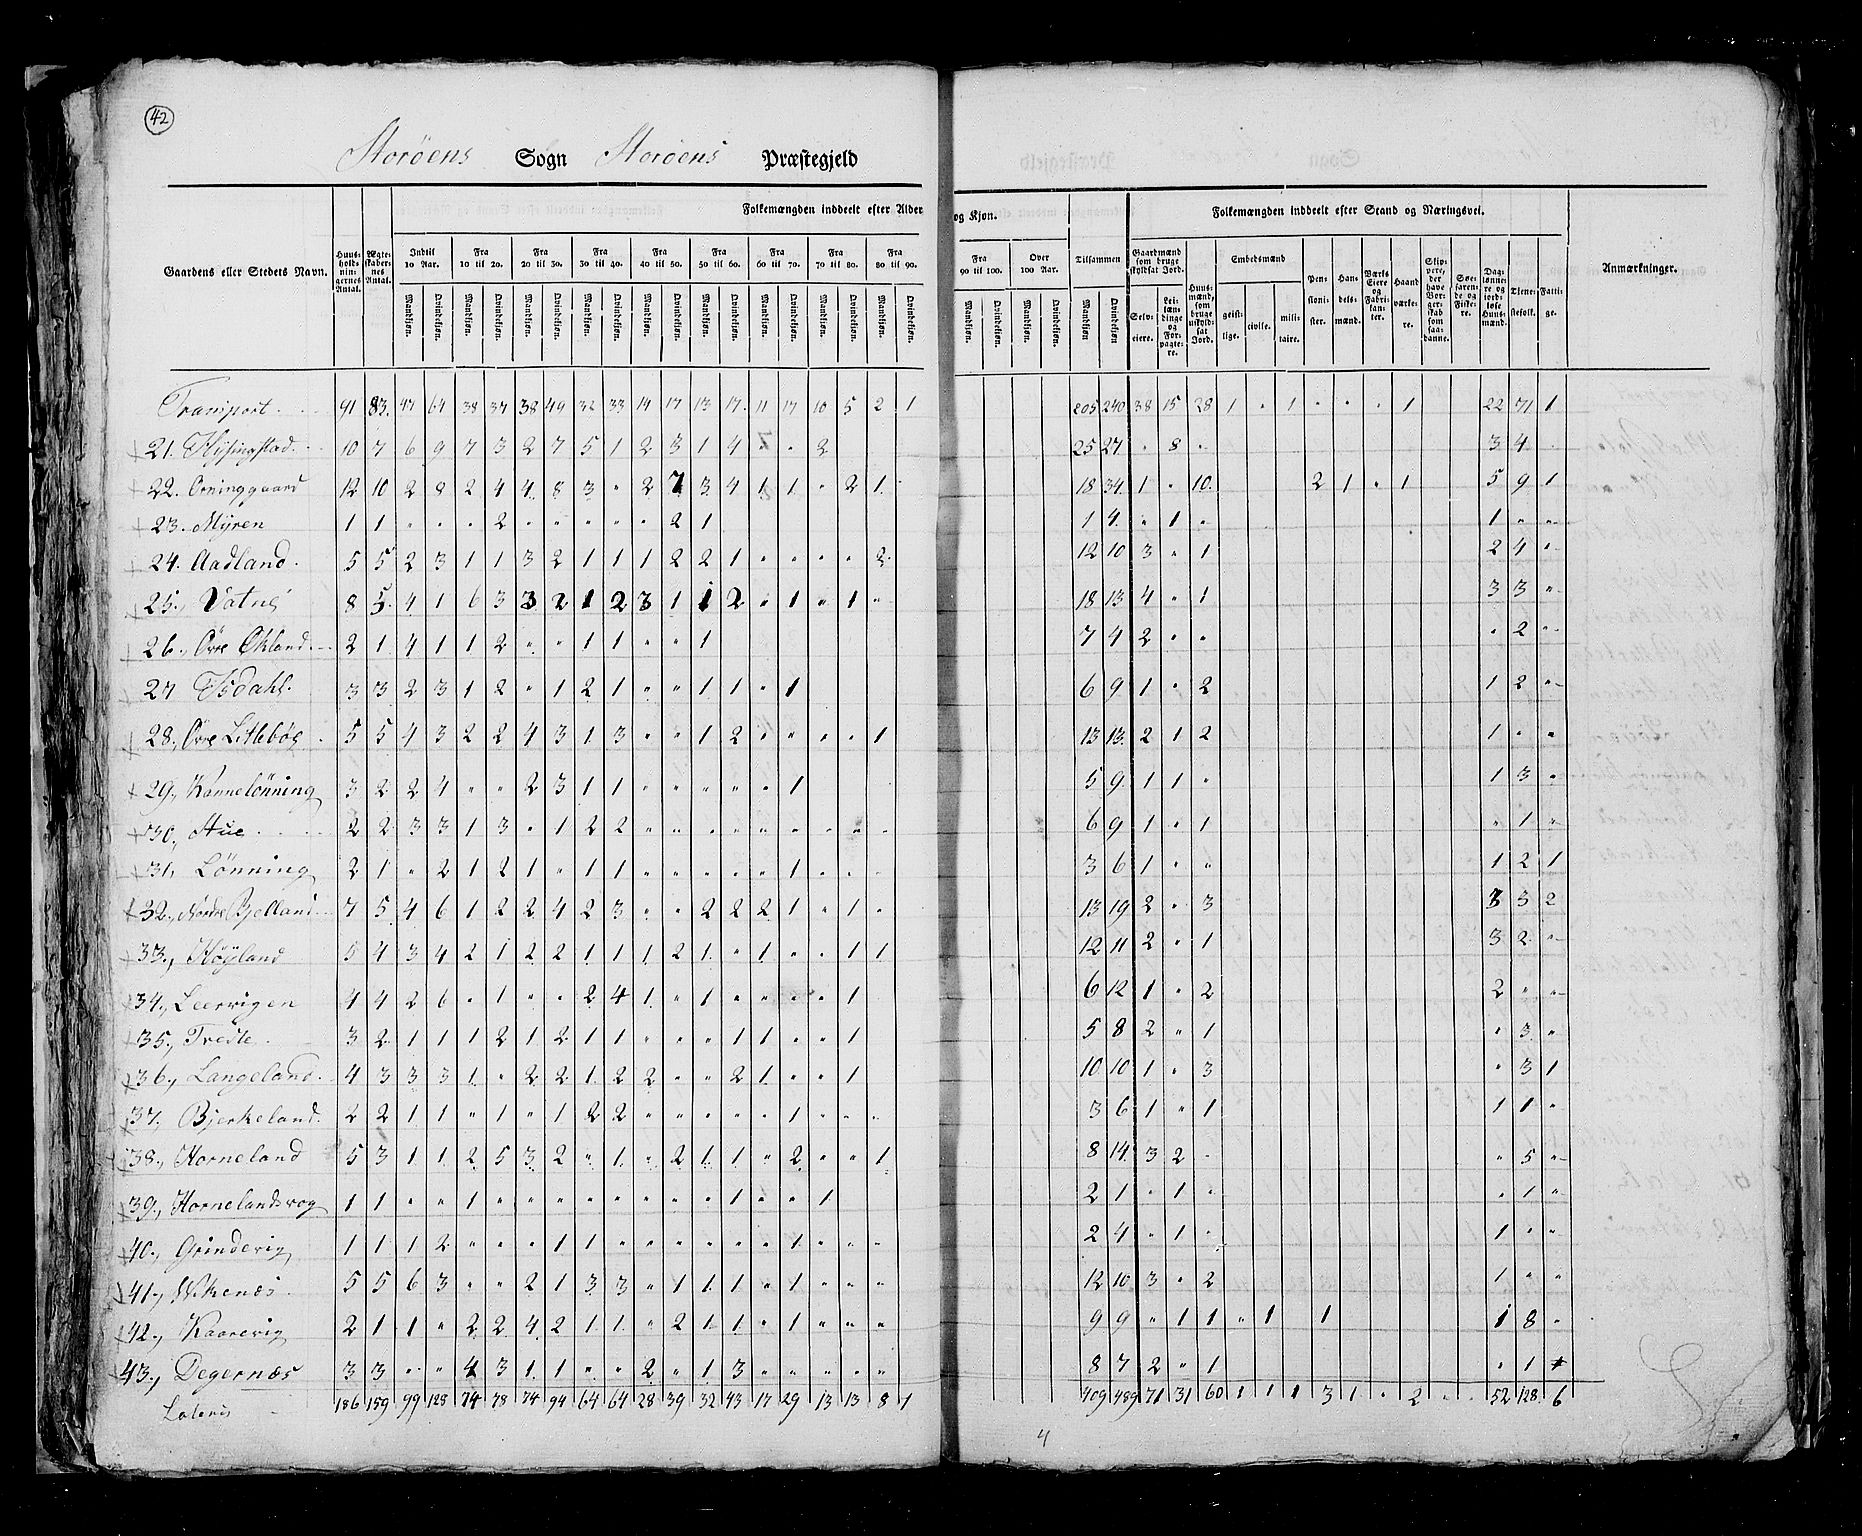 42
Storöens Sogn Storöens Præstegjeld
Folkemængden inddeelt efter Alder og Kjøn. Folkemængden inddeelt efter Stand og Næringsvei.
Gaardens eller Stedets Navn. Huusholdningernes Antal. Ægteskabernes Antal. Indtil 10 Aar. Fra 10 til 20. Fra 20 til 30. Fra 30 til 40. Fra 40 til 50. Fra 50 til 60. Fra 60 til 70. Fra 70 til 80. Fra 80 til 90. Fra 90 til 100. Over 100 Aar. Tilsammen Gaardmænd som bruge skyldsat Jord. Huusmænd, som bruge uskyldsat Jord. Embedsmænd Pensionister. Handelsmænd. Værks Eiere og Fabrikanter. Haandværkere. Skippere, der have Borgerskab som saadanne. Søefarende og Fiskere. Daglønnere og jordløse Huusmænd. Tjenestefolk. Fattige. Anmærkninger.
Mandkjøn. Qvindekjøn. Mandkjøn. Qvindekjøn. Mandkjøn. Qvindekjøn. Mandkjøn. Qvindekjøn. Mandkjøn. Qvindekjøn. Mandkjøn. Qvindekjøn. Mandkjøn. Qvindekjøn. Mandkjøn. Qvindekjøn. Mandkjøn. Qvindekjøn. Mandkjøn. Qvindekjøn. Mandkjøn. Qvindekjøn. Mandkjøn Qvindekjøn Selveiere. Leilændinge og Forpagtere. geistlige. civile. militaire.
Transport. 91 83. 47 64 38 37 38 49 32 33 14 17 13 17. 11 17 10 5 2 1 205 240 38 15 28 1 " 1 " " " 1 22 71 1
21. Hysingstad. 10 7 6 9 7 3 2 7 5 1 2 3 1 4 " " 2 25 27 " 8 " 3 4
22. Orninggaard 12 10 2 8 2 4 4 8 3 " 2 7 3 4 1 1 " 2 1 18 34. 1 " 10. 2 1 " 1 5 9 1
23. Myren 1 1 " " " 2 " " " " " 2 1 1 4. " 1 " 1 " "
24. Aadland. 5 5 2 3 1 1 3 2 1 1 1 2 2 1 " " " " 2 12 10 3 " 1 2 4 "
25., Vatne 8 5. 4 1 6 3 3 2 1 2 3 1 1 2 " 1 " 1 " 18 13 4 " 1 3 3 "
26., Øvre Økland. 2 1 4 1 1 2 " " 1 1 " " 1 7 4 2 " " " 2 "
27 Isdahl. 3 3 2 3 1 2 " 1 2 1 " " 1 1 " 1 6 9 1 " 2 1 2 "
28., Øvre Litlebøe 5 5 4 3 2 2 4 3 1 3 " " 1 2 " " " " 1 13 13. 2 1 2 1 " "
29., Kannelönning 3 2 2 4 " " 2 3 1 1 " " " " " 1 5 9. 1 1 " 1 3 "
30., Hue 2 2 3 3 1 3 " 1 2 2 " " " " " " " " " 6 9 1 " 1 " 1 "
31., Lönning 2 1 " 2 1 2 1 " 1 1 " " " " " 1 " " " 3 6 1 " " 1 2 1
32., Nordre Bjelland 7 5 4 6 1 2 2 4 2 3 " " 2 2 2 1 " 1 " 13 19 2 " 3 3 3 2
33., Höyland 5 4 3 4 2 1 2 2 1 1 1 2 1 " 1 " " 1 1 12 11 2 " 1 3 2 "
34., Leervigen 4 4 2 6 " 1 " " 2 4 1 " 1 " " " " 1 6 12 1 " 2 2 " "
35., Tredte 3 2 1 1 1 2 1 2 1 1 " " " 1 1 " " 1 5 8 2 " 1 " 3 "
36., Langeland. 4 3 3 3 1 " 2 2 1 2 2 " " 2 1 " " 1 10 10 1 " 3 " 3 1
37. Bjerkeland. 2 2 1 1 " 1 " 1 2 2 " " " " " 1 " " " 3 6 1 " 1 1 1 "
38., Horneland 5 3 1 1 2 5 3 2 " 1 " 2 1 1 " 2 " " 1 8 14. 3 2 " " 5 "
39., Hornelandsvog 1 1 " " 1 " " " " " " " " 1 " " 1 2 1 " 1 " " 1 "
40., Grindevig 1 1 1 2 " " " 1 1 " " " " " " 1 " " " 2 4 " 1 " 1 " "
41., Vikenæs. 5 5 6 3 " " 2 1 3 3 " 1 1 1 " 1 " " " 12 10 3 " 2 1 " "
42., Kaarevig 2 1 1 " 2 2 4 2 1 1 " 2 1 1 " 1 " " " 9 9 " 1 1 " 1 1 1 8 "
43., Degernæs 3 3 " " 4 3 1 1 " " 2 " 1 3 " " " " " 8 7 2 " 1 " 1
Lateris 186 159 99 128 74 78 74 94 64 64 28 39 32 43 17 29 13 13 8 1 409 489 71 31 60 1 1 1 3 1 " 2 " " 52 128 6
4